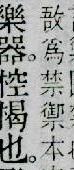 敔為禁禦本
樂器。椌楬也。